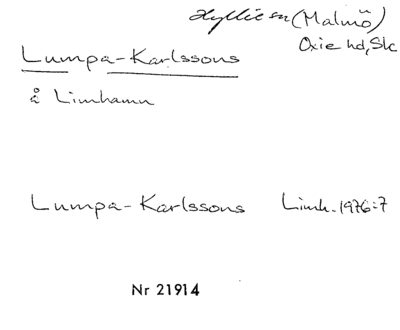 Hyllie sn (Malmö)
Oxie hd, Sk
Lumpa-Karlssons
å Limhamn
Lumpa-Karlssons Limh. 1976:7
Nr 21914